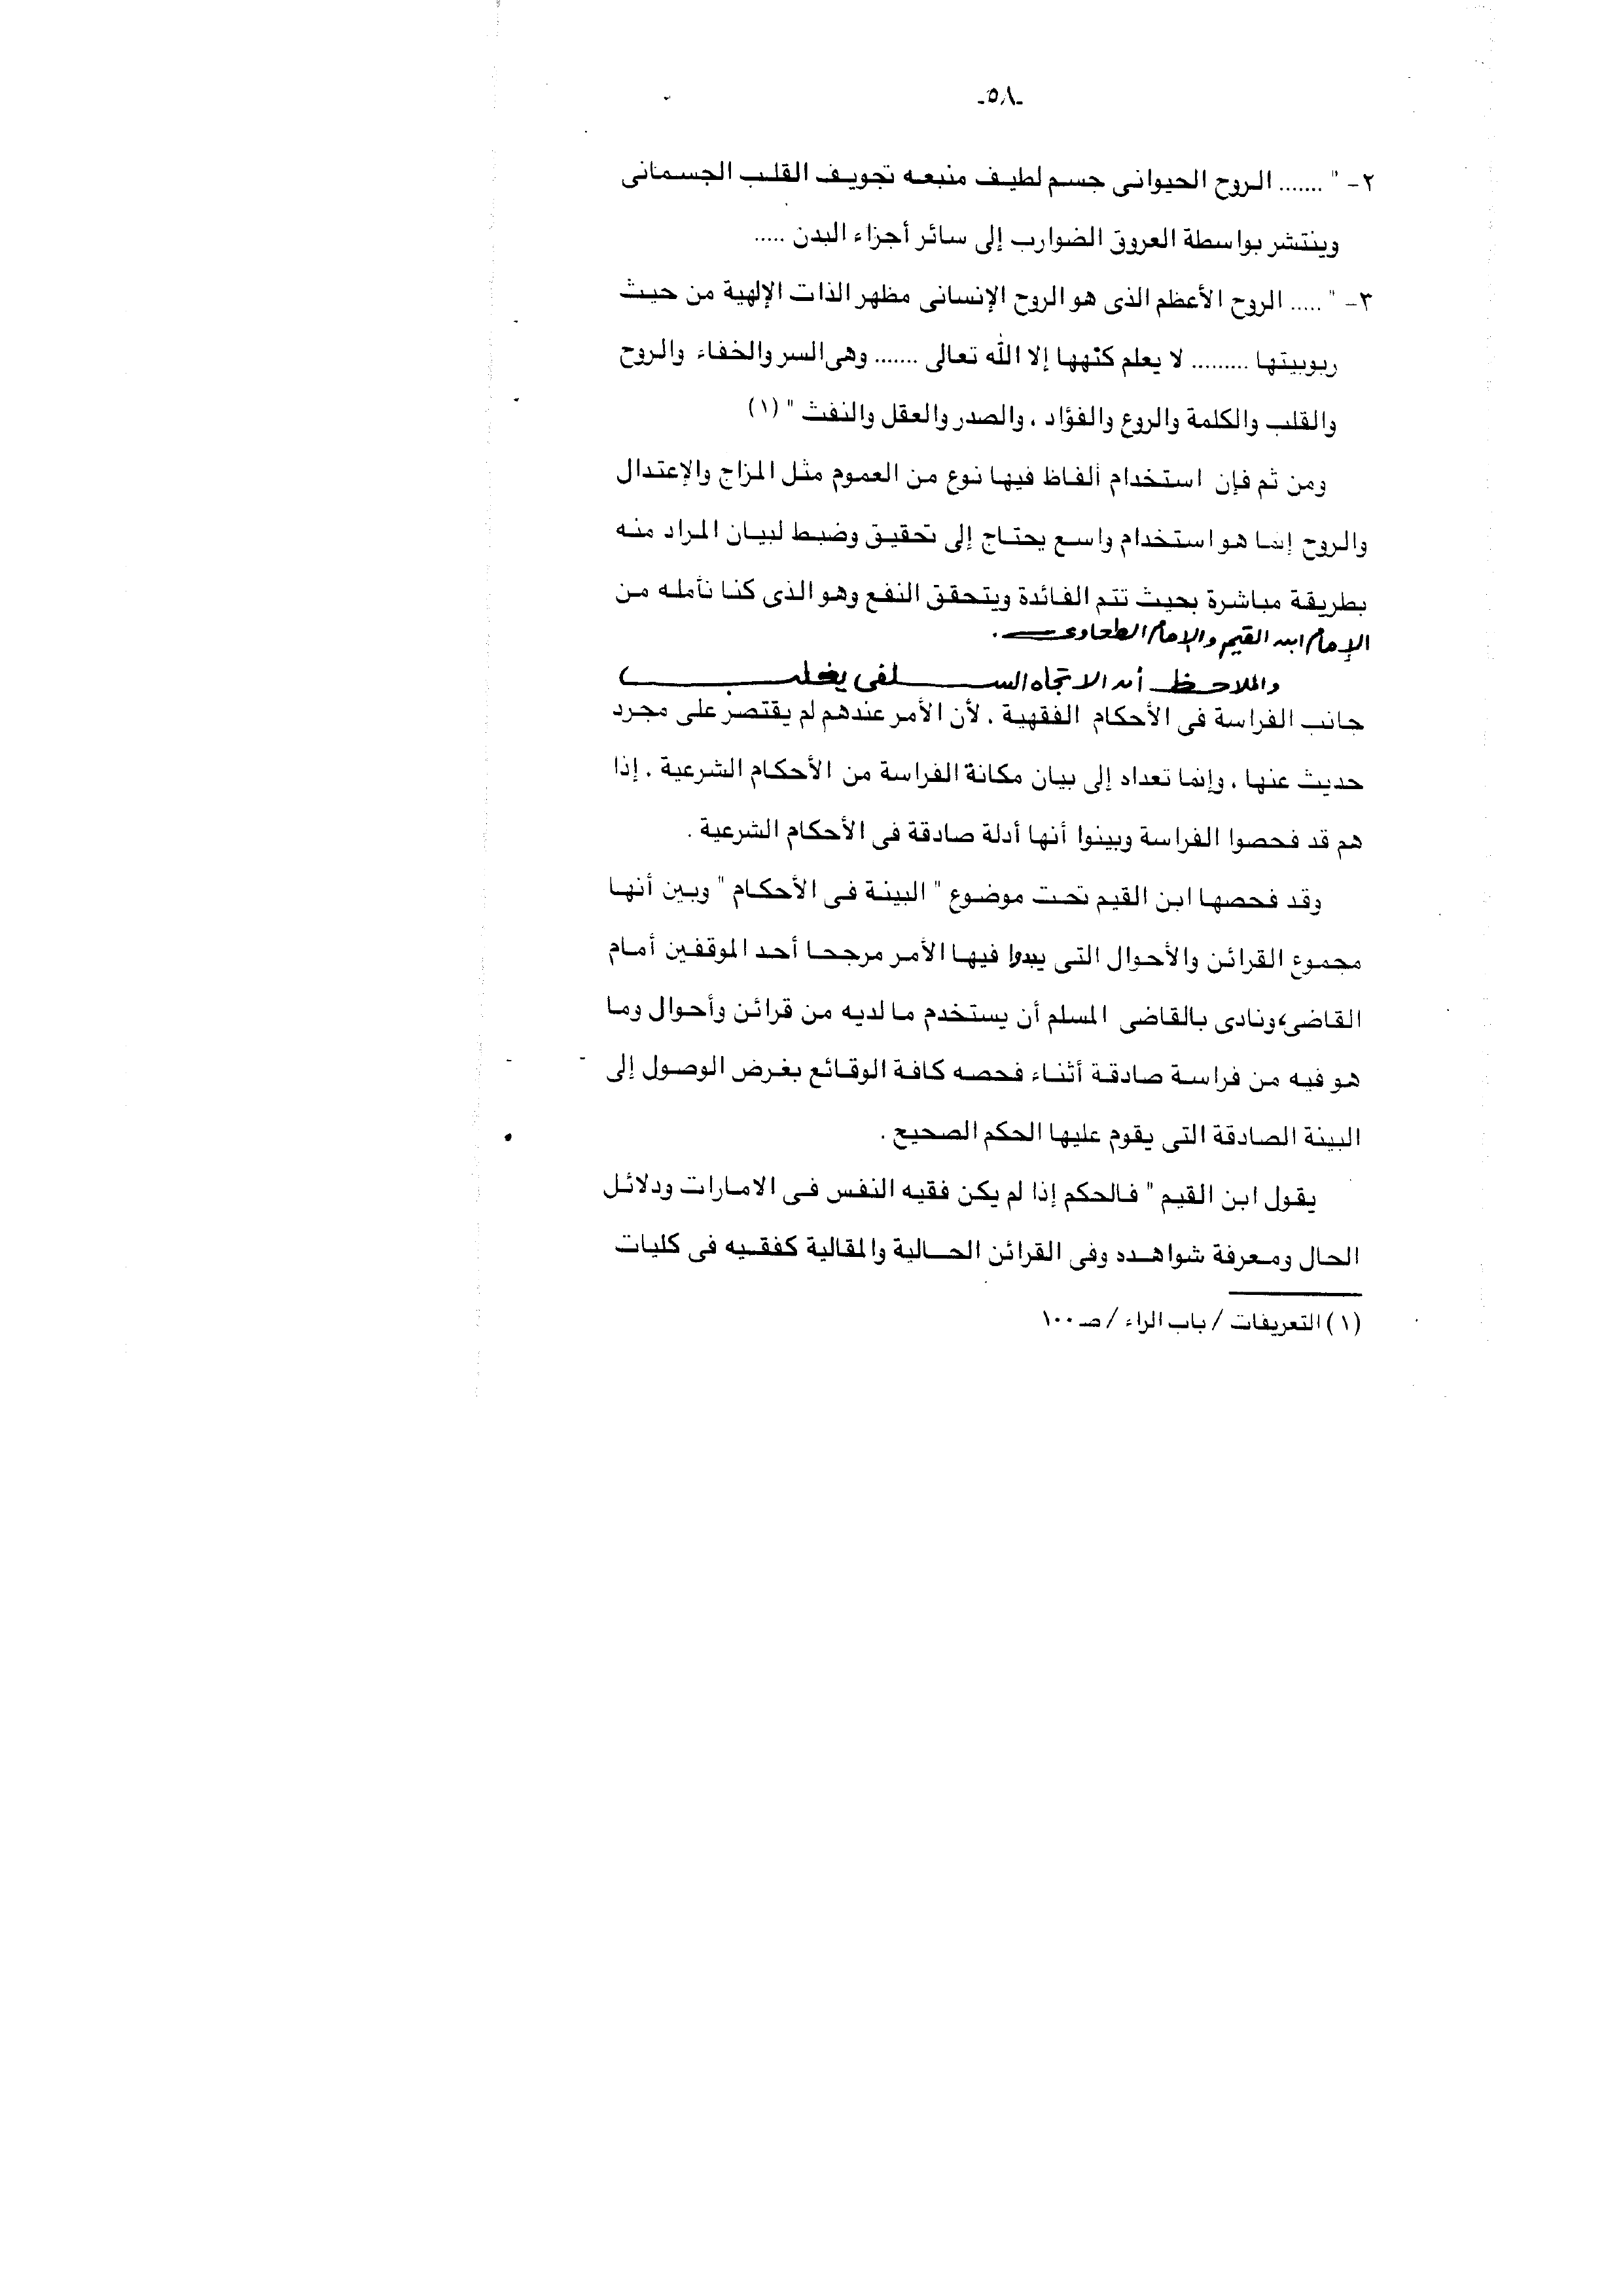 -٥٨-
٢- " ....... الروح الحيوانى جسم لطيف منبعه تجويف القلب الجسمانى
وينتشر بواسطة العروق الضوارب إلى سائر أجزاء البدن .....
٣- " ..... الروح الأعظم الذى هو الروح الإنسانى مظهر الذات الإلهية من حيث
ربوبيتها ......... لا يعلم كنهها إلا الله تعالى ....... وهى السر والخفاء والروح
والقلب والكلمة والروع والفؤاد ، والصدر والعقل والنفث " (١)
ومن ثم فإن استخدام ألفاظ فيها نوع من العموم مثل المزاج والإعتدال
والروح إنما هو استخدام واسع يحتاج إلى تحقيق وضبط لبيان المراد منه
بطريقة مباشرة بحيث تتم الفائدة ويتحقق النفع وهو الذى كنا نأمله من
الإمام ابن القيم والإمام الطحاوى .
والملاحظ أن الاتجاه السلفى يغلب
جانب الفراسة فى الأحكام الفقهية ، لأن الأمر عندهم لم يقتصر على مجرد
حديث عنها ، وإنما تعداه إلى بيان مكانة الفراسة من الأحكام الشرعية . إذا
هم قد فحصوا الفراسة وبينوا أنها أدلة صادقة فى الأحكام الشرعية .
وقد فحصها ابن القيم تحت موضوع " البينة فى الأحكام " وبين أنها
مجموع القرائن والأحوال التى يبدوا فيها الأمر مرجحا أحد الموقفين أمام
القاضى، ونادى بالقاضى المسلم أن يستخدم ما لديه من قرائن وأحوال وما
هو فيه من فراسة صادقة أثناء فحصه كافة الوقائع بغرض الوصول إلى
البينة الصادقة التى يقوم عليها الحكم الصحيح .
يقول ابن القيم " فالحكم إذا لم يكن فقيه النفس فى الامارات ودلائل
الحال ومعرفة شواهده وفى القرائن الحالية والمقالية كفقيه فى كليات
(١) التعريفات / باب الراء / صـ ١٠٠